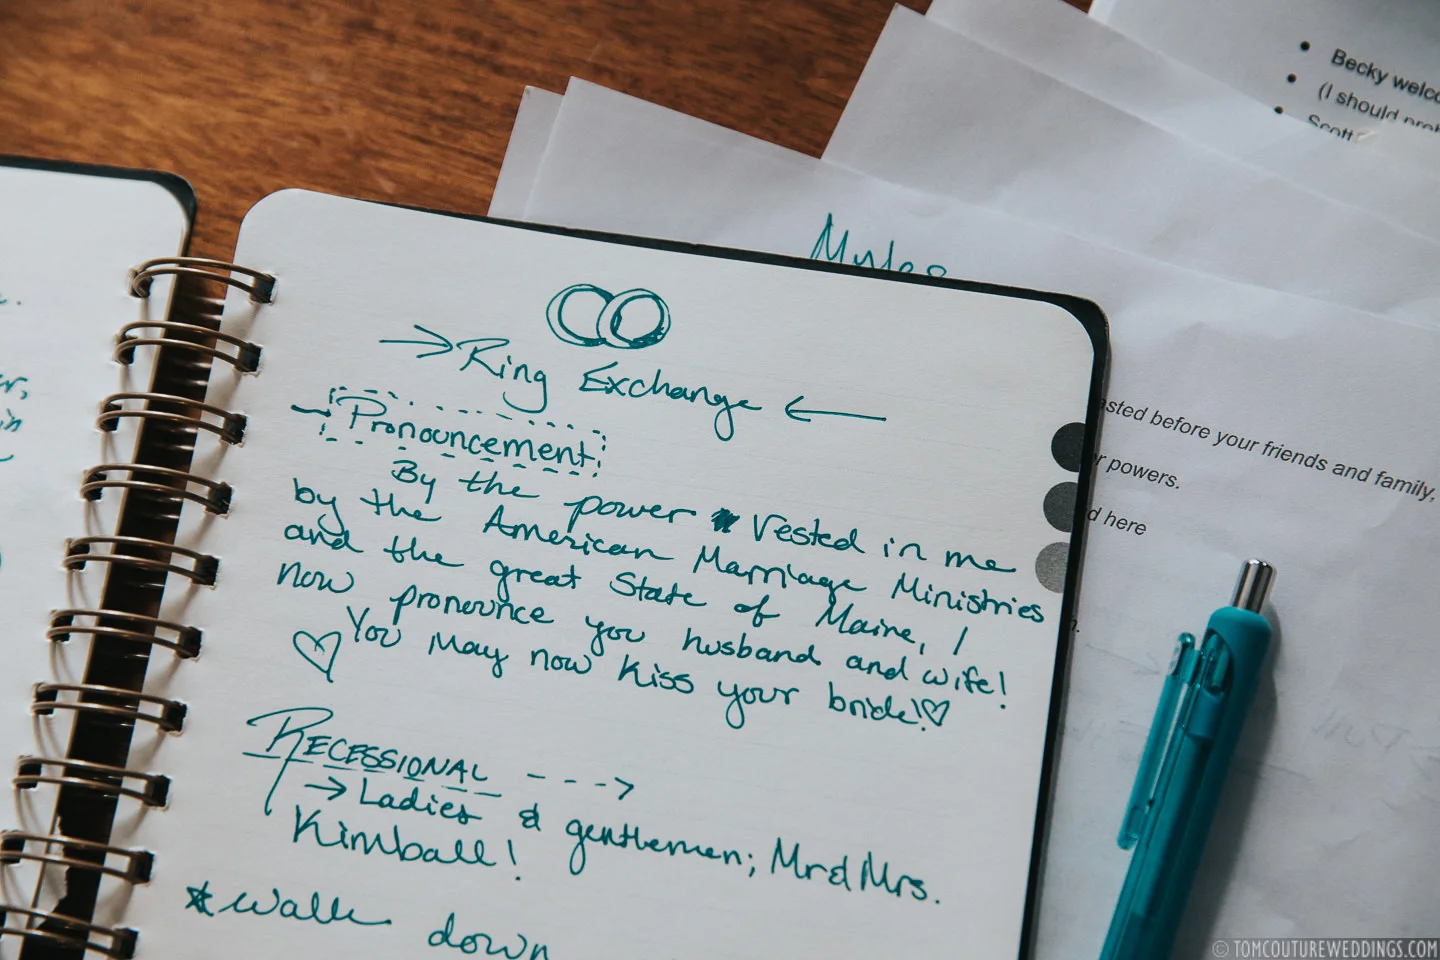 Becky welco
(I should prob
Scott
Myles
Ring Exchange
Pronouncement
By the power vested in me
by the American Marriage Ministries
and the great State of Maine, I
now pronounce you husband and wife!
You May now Kiss your bride!
RECESSIONAL
Ladies & gentlemen; Mr & Mrs.
Kimball!
walk down
ested before your friends and family,
r powers.
d here
n.
er,
in
© TOMCOUTUREWEDDINGS.COM